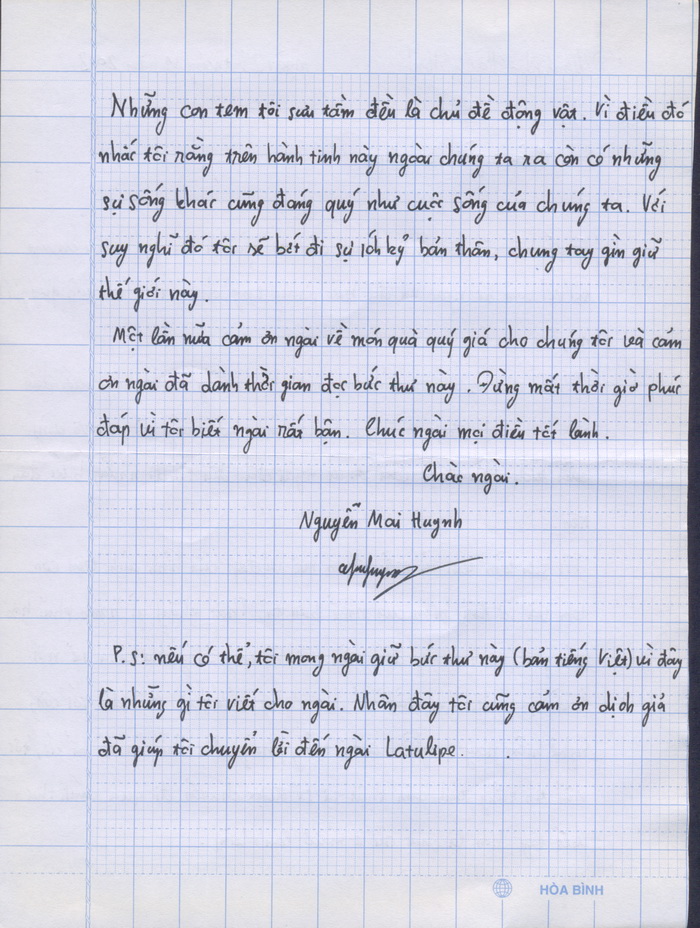 Những con tem tôi sưu tầm đều là chủ đề động vật. Vì điều đó
nhắc tôi rằng trên hành tinh này ngoài chúng ta ra còn có những
sự sống khác cũng đáng quý như cuộc sống của chúng ta. Với
suy nghĩ đó tôi sẽ bớt đi sự ích kỷ bản thân, chung tay gìn giữ
thế giới này.
Một lần nữa cảm ơn ngài về món quà quý giá cho chúng tôi và cảm
ơn ngài đã dành thời gian đọc bức thư này. Đừng mất thời giờ phúc
đáp vì tôi biết ngài rất bận. Chúc ngài mọi điều tốt lành.
Chào ngài.
Nguyễn Mai Huynh
P.S: nếu có thể, tôi mong ngài giữ bức thư này (bản tiếng Việt) vì đây
là những gì tôi viết cho ngài. Nhân đây tôi cũng cảm ơn dịch giả
đã giúp tôi chuyển lời đến ngài Latulipe.
HÒA BÌNH